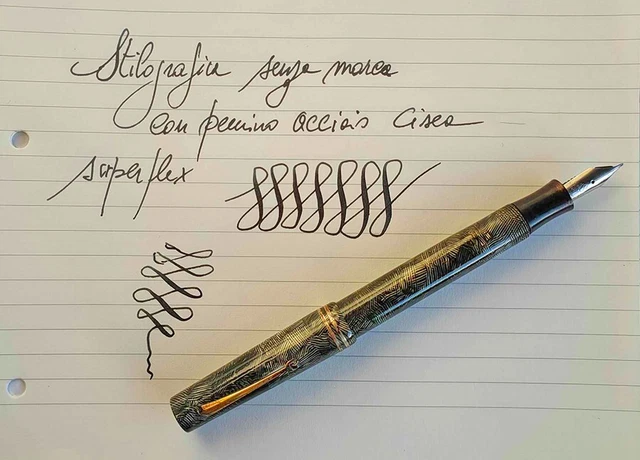 Stilografica senza marca
con pennino acciaio Cisea
superflex